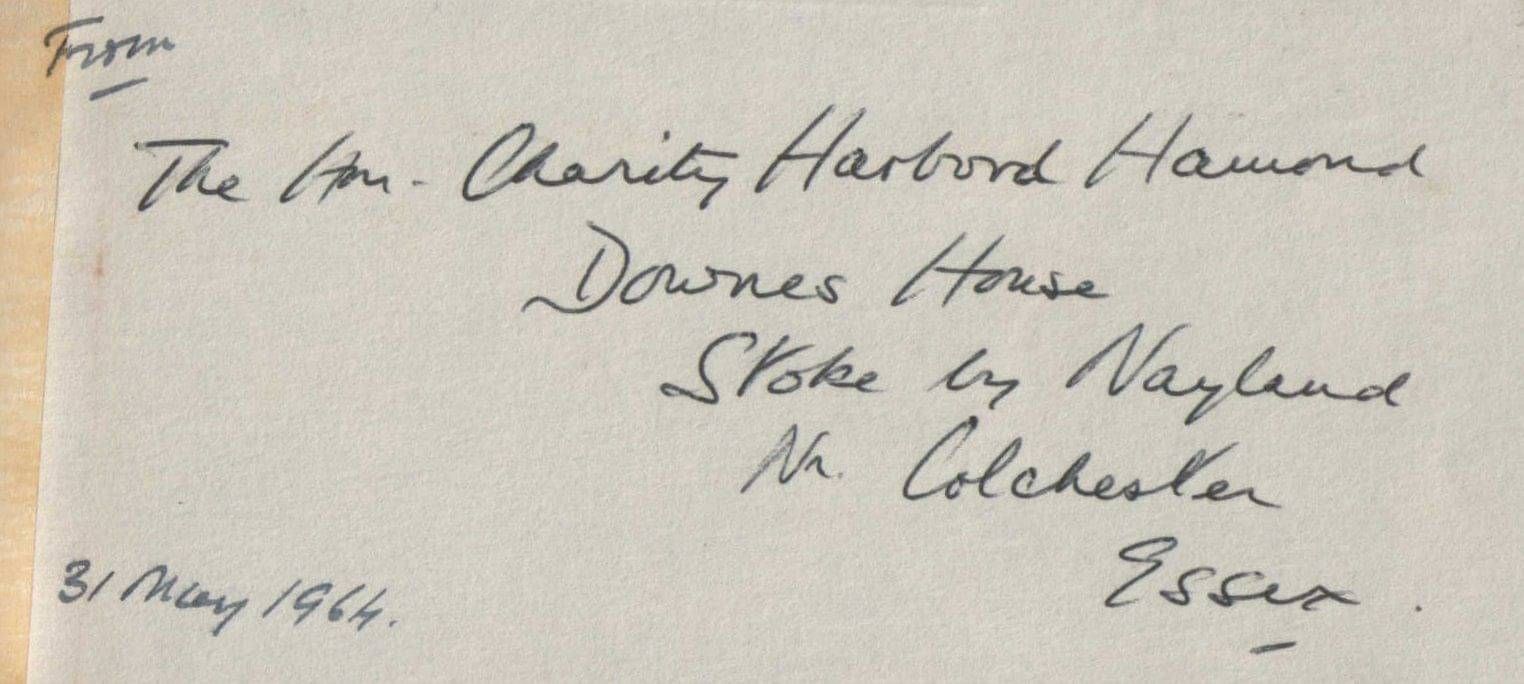 From
The Hon. Charity Harbord Hamond
Downes House
Stoke by Nayland
Nr. Colchester
Essex.
31 May 1964.